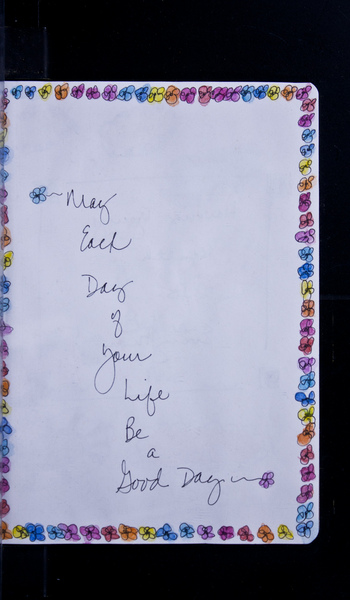 May
Each
Day
of
Your
Life
Be
a
Good Day